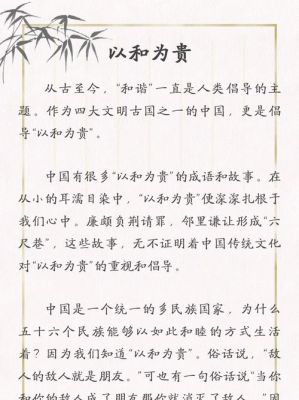 以和为贵
从古至今，“和谐”一直是人类倡导的主
题。作为四大文明古国之一的中国，更是倡
导“以和为贵”。
中国有很多“以和为贵”的成语和故事。在
从小的耳濡目染中，“以和为贵”便深深扎根于
我们心中。廉颇负荆请罪，邻里谦让形成“六
尺巷”，这些故事，无不证明着中国传统文化
对“以和为贵”的重视和倡导。
中国是一个统一的多民族国家，为什么
五十六个民族能够以如此和睦的方式生活
着？因为我们知道“以和为贵”。俗话说，“敌
人的敌人就是朋友。”可也有一句俗话说“当你
和你的敌人成了朋友那你就消灭了敌人。”因